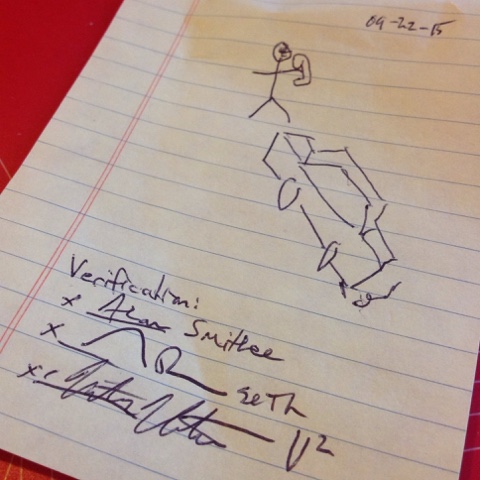 09-22-15
Verification:
x Alan Smithee
x Seth
x V²